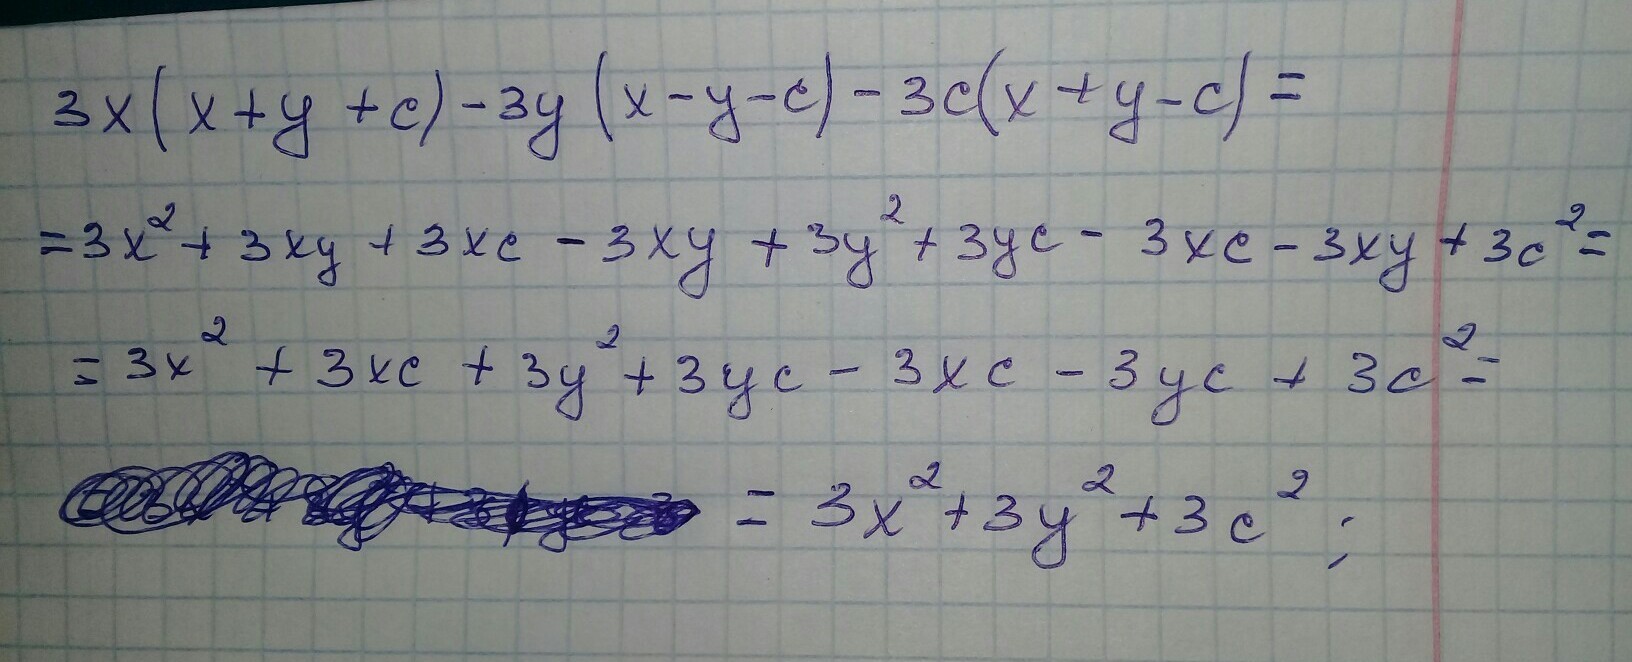 3x(x+y+c)-3y(x-y-c)-3c(x+y-c)=
=3x²+3xy+3xc-3xy+3y²+3yc-3xc-3xy+3c²=
=3x²+3xc+3y²+3yc-3xc-3yc+3c²=
=3x²+3y²+3c²;